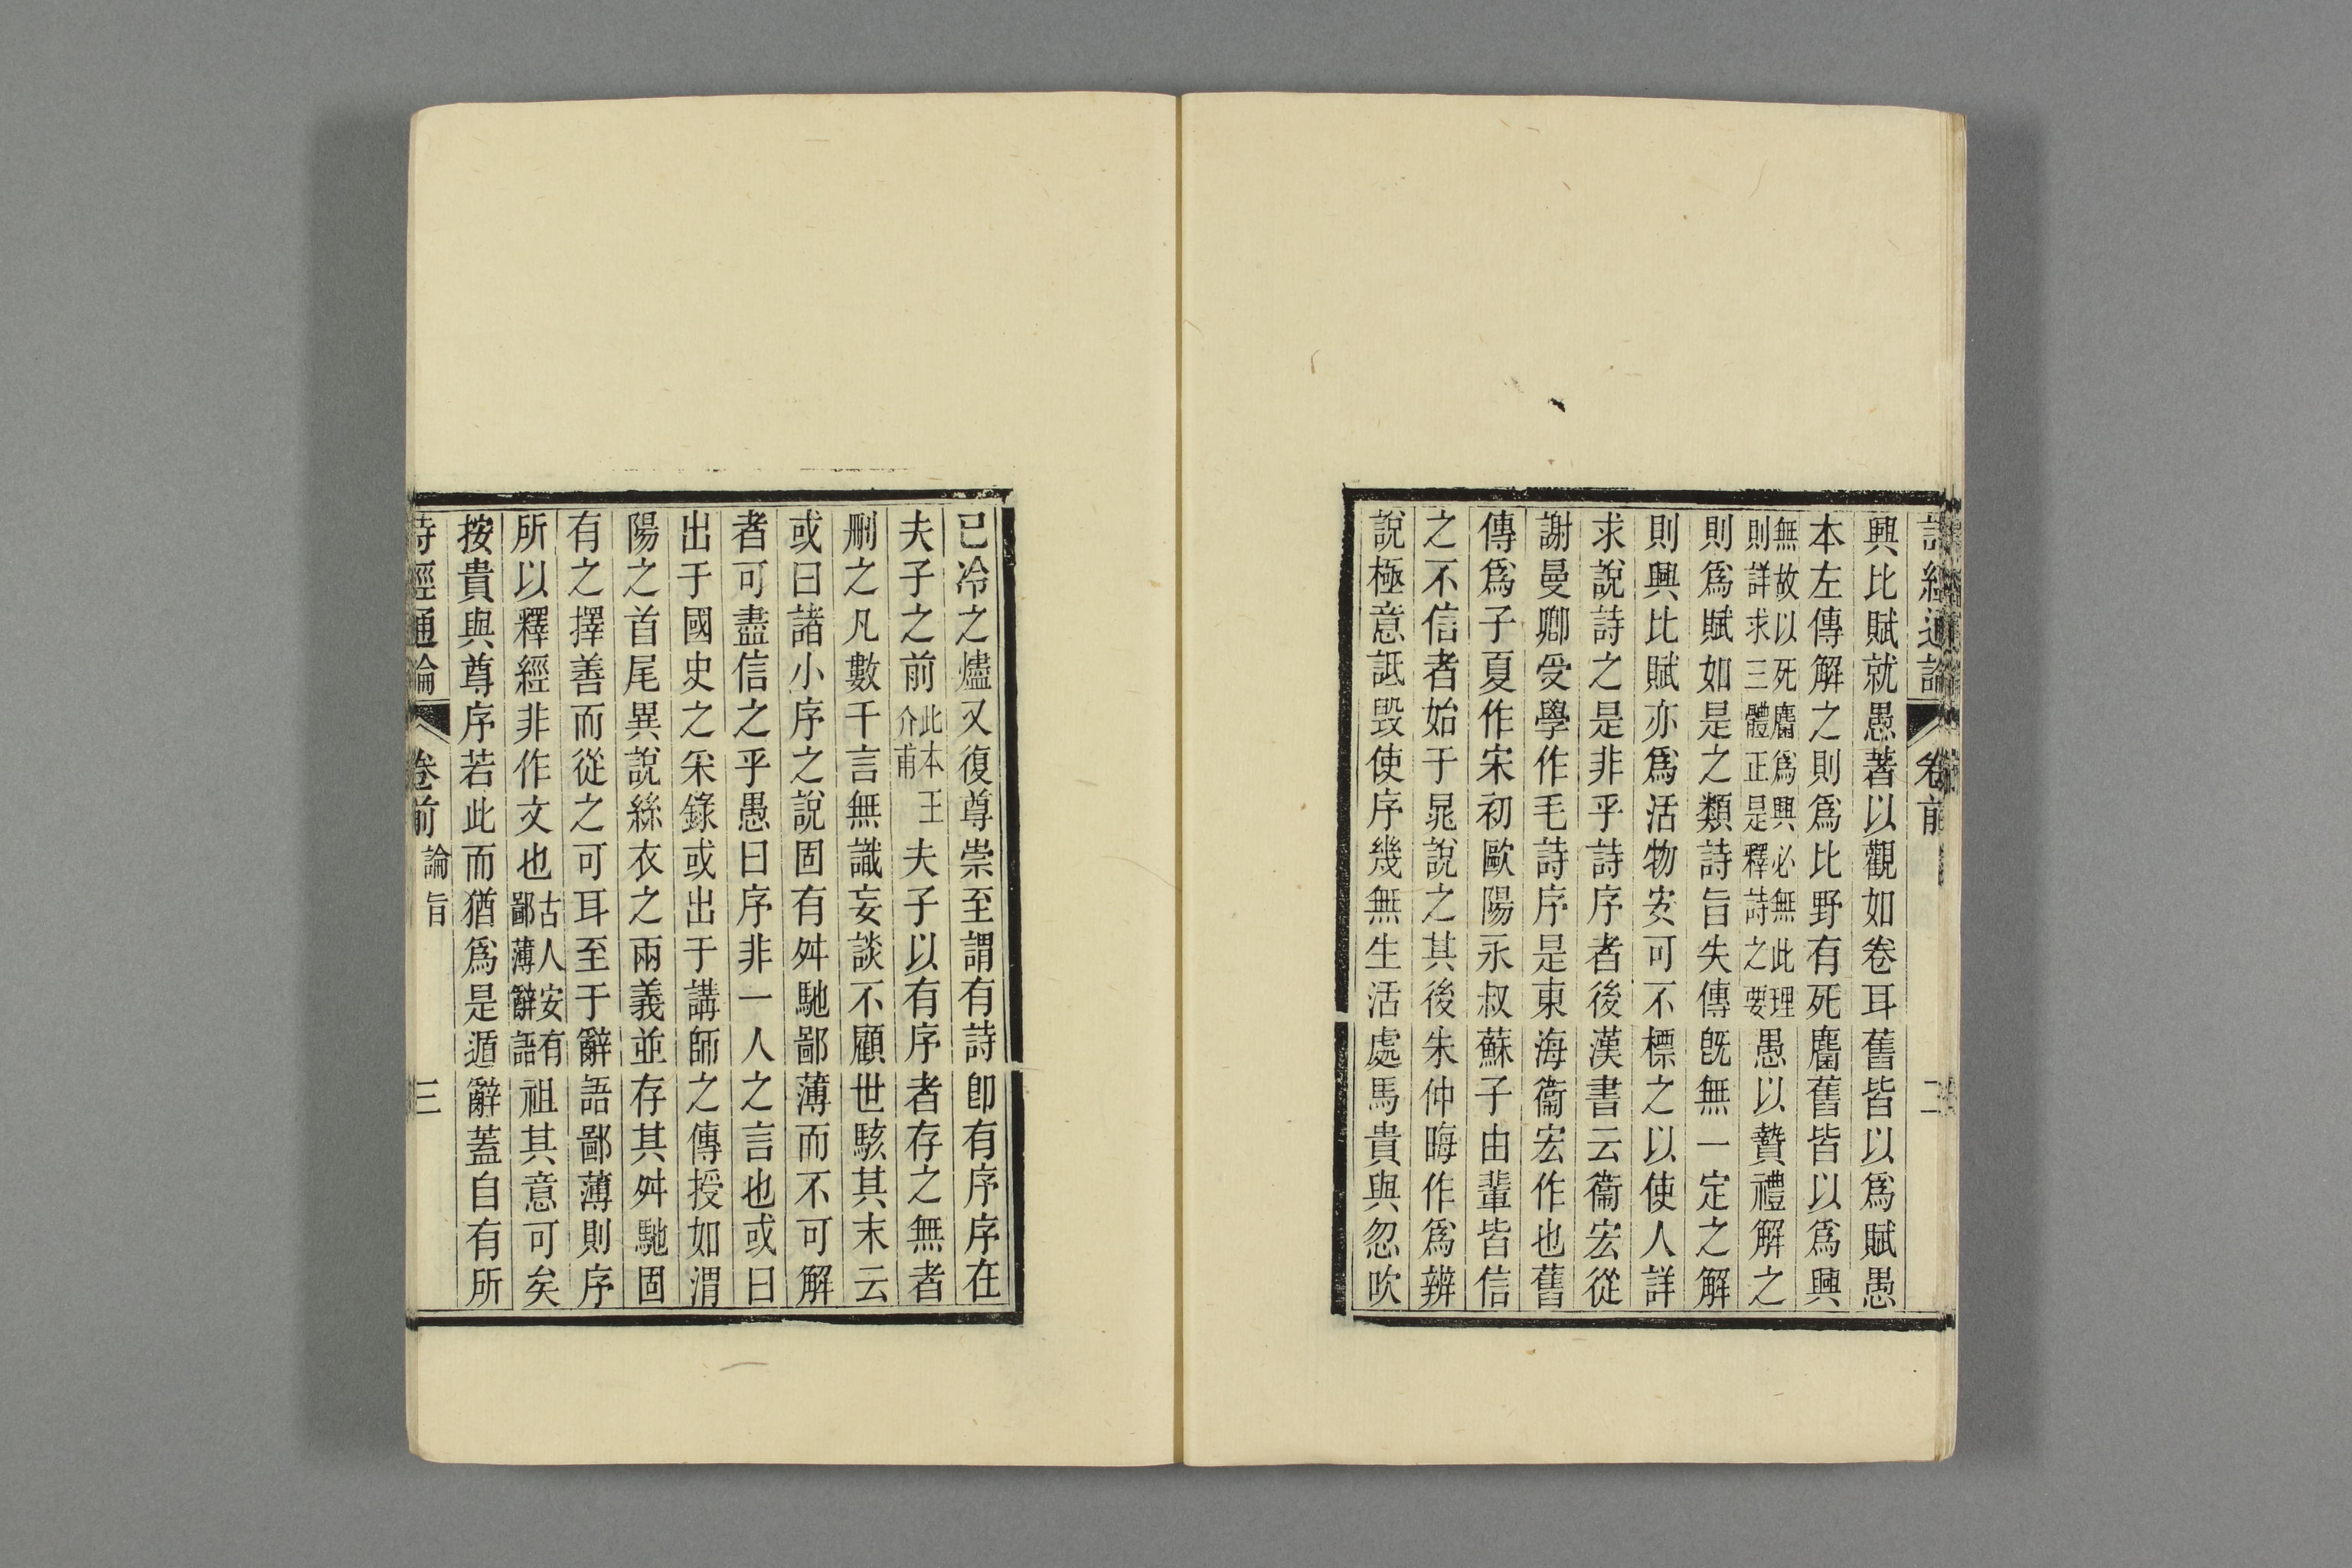 詩經通論 卷前 二
興比賦就愚著以觀如卷耳舊皆以爲賦愚
本左傳解之則爲比野有死麕舊皆以爲興
無故以死麕爲興必無此理
則詳求三體正是釋詩之要
愚以贄禮解之
則爲賦如是之類詩旨失傳旣無一定之解
則興比賦亦爲活物安可不標之以使人詳
求說詩之是非乎詩序者後漢書云衞宏從
謝曼卿受學作毛詩序是東海衞宏作也舊
傳爲子夏作宋初歐陽永叔蘇子由輩皆信
之不信者始于晁說之其後朱仲晦作爲辨
說極意詆毀使序幾無生活處馬貴與忽吹
已冷之燼又復尊崇至謂有詩卽有序序在
夫子之前
此本王
介甫
夫子以有序者存之無者
刪之凡數千言無識妄談不顧世駭其末云
或曰諸小序之說固有舛馳鄙薄而不可解
者可盡信之乎愚曰序非一人之言也或曰
出于國史之采錄或出于講師之傳授如渭
陽之首尾異說絲衣之兩義並存其舛馳固
有之擇善而從之可耳至于辭語鄙薄則序
所以釋經非作文也
古人安有
鄙薄辭語
祖其意可矣
按貴與尊序若此而猶爲是遁辭蓋自有所
詩經通論 卷前 論旨 三